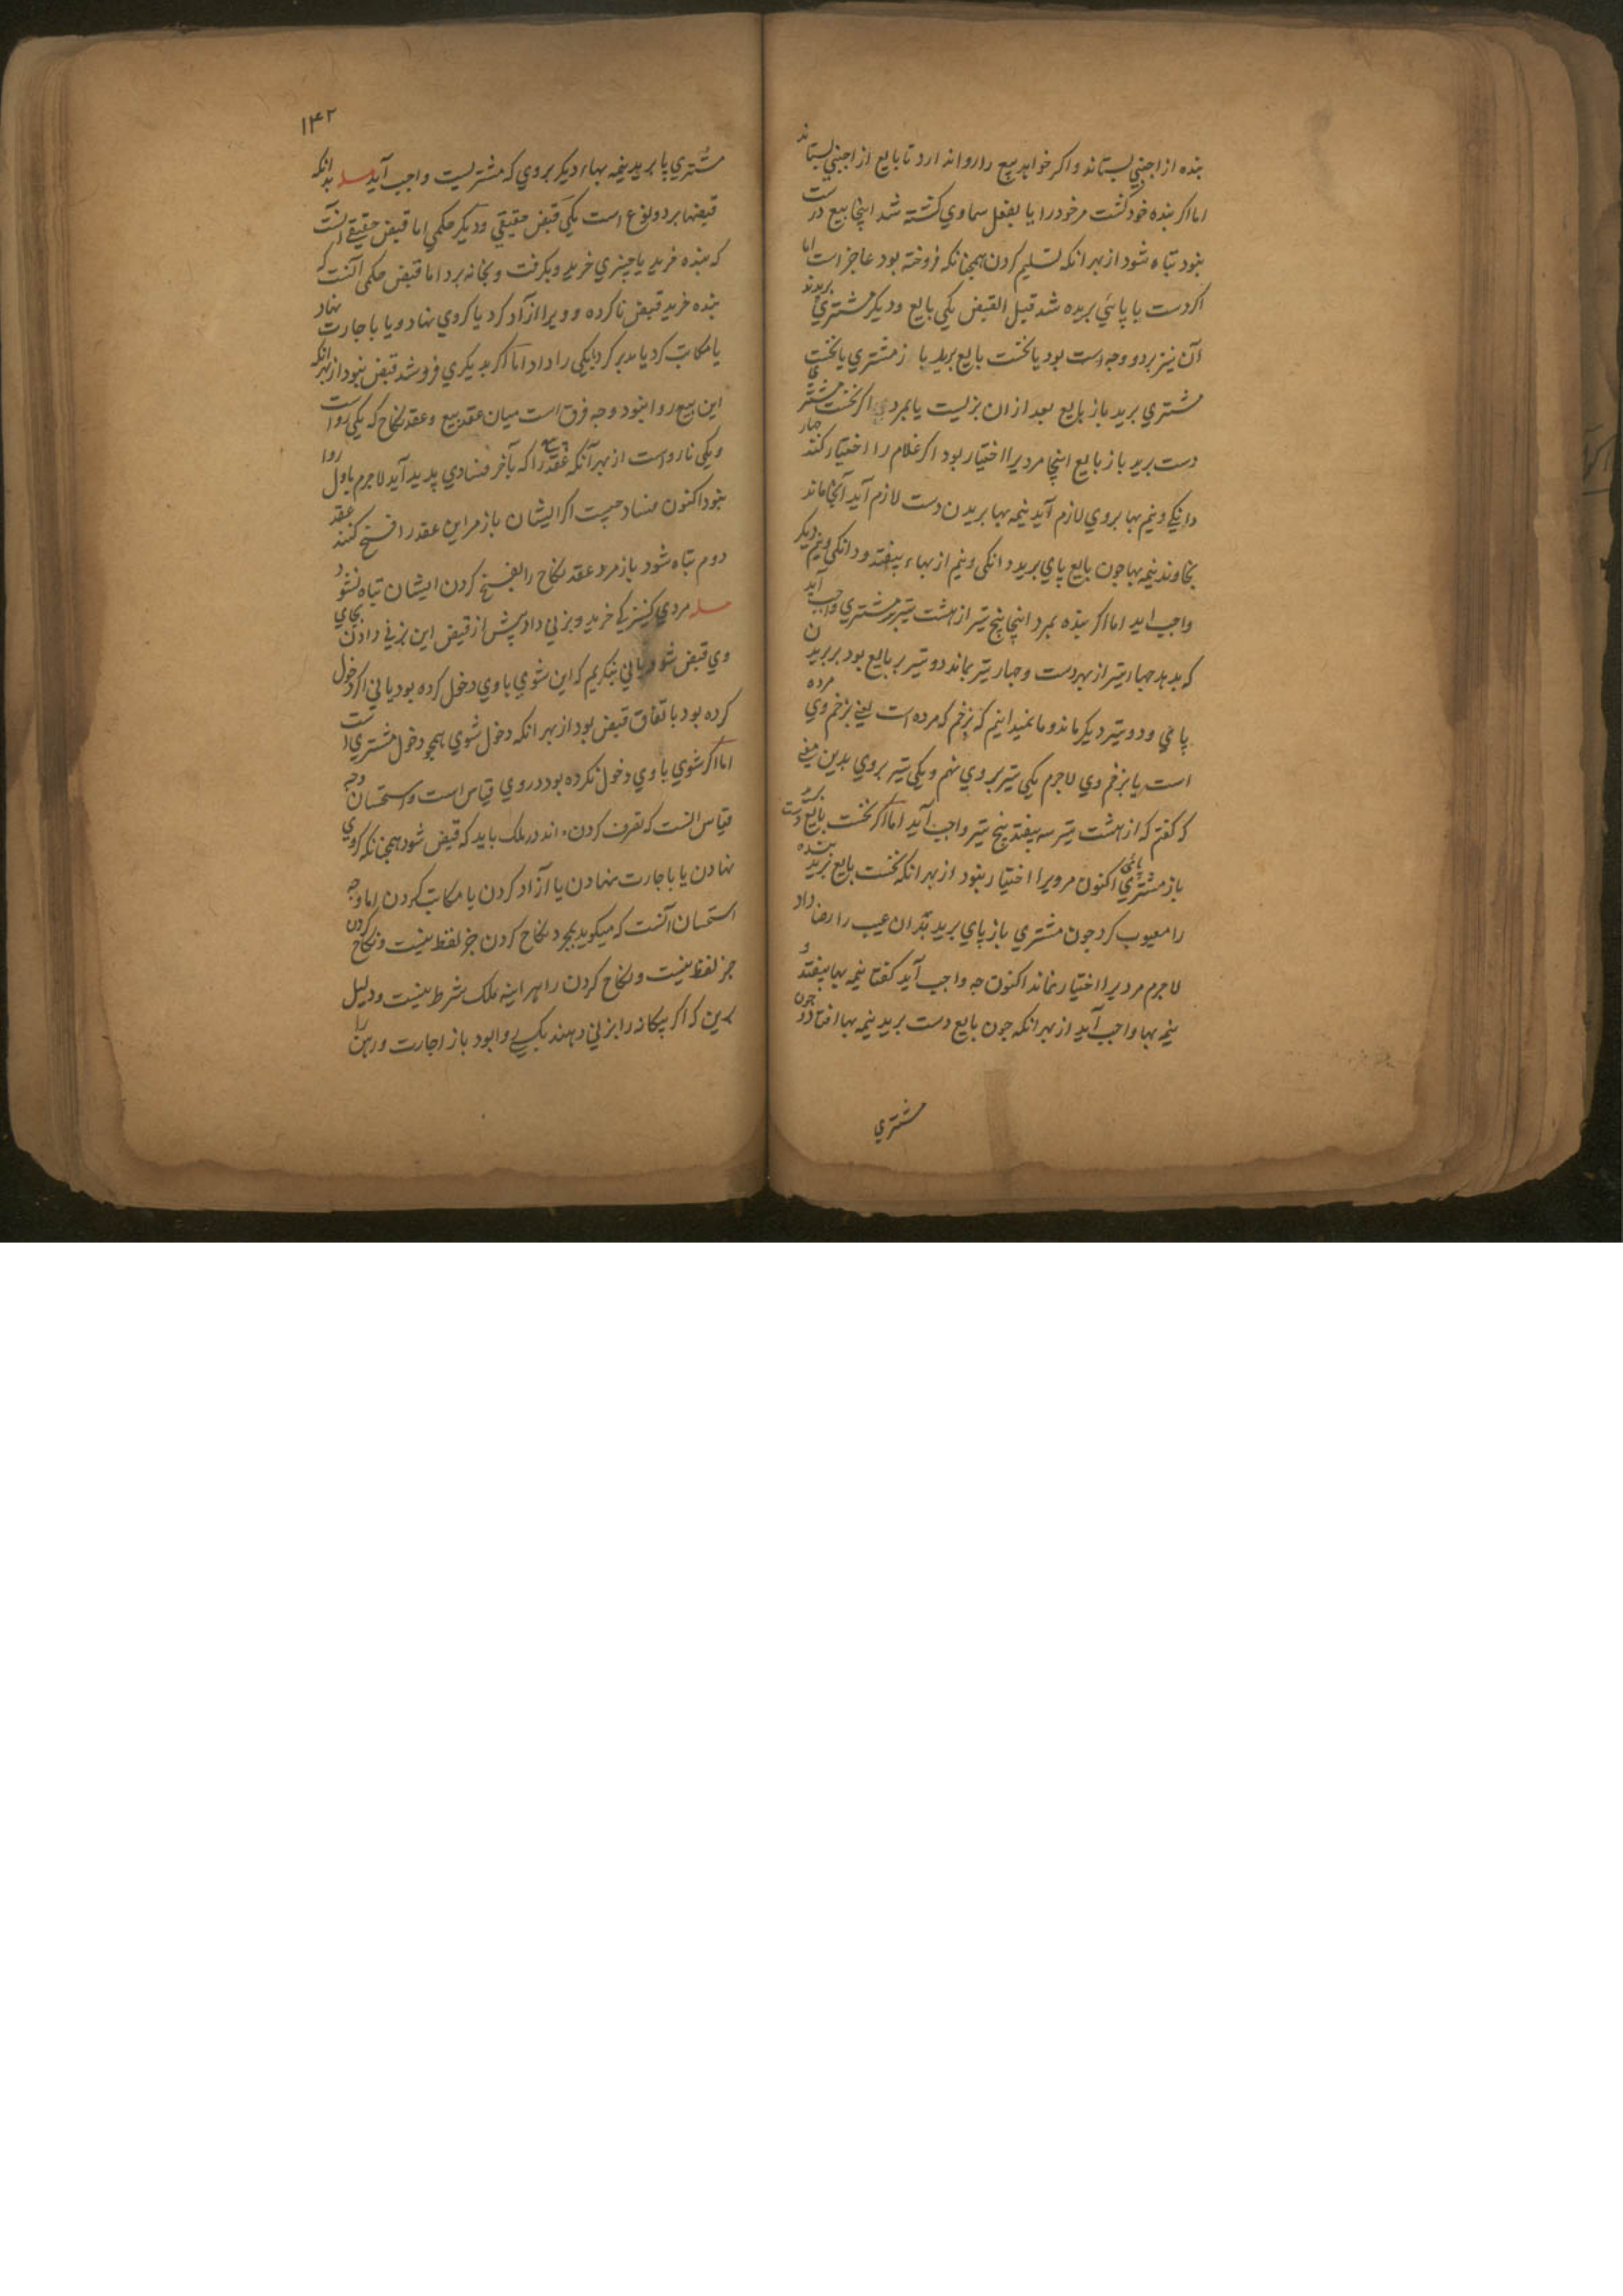 بنده از اجنبي بستاند و اكر خواهد بيع را روا ندارد تا بايع از اجنبي بستاند
اما اكر بنده خود كشت مر خود را يا بفعل سماوي كشته شد اينجا بيع درست
نبود تباه شود از بهر انكه تسليم كردن همچنانكه فروخته بود عاجز است اما
اكر دست يا پائي بريده شد قبل القبض يكي بايع و ديكر مشتري بريدند
آن نيز بر دو وجه است بود يا نخست بايع بريد باز مشتري يا نخست
مشتري بريد باز بايع بعد از ان بزيست يا بمرد اكر نخست مشتري
دست بريد باز بايع اينجا مرد يرا اختيار بود اكر غلام را اختيار كند چهار
دانيكي و نيم بها بروي لازم آيد نيمه بها بريدن دست لازم آيد آنجا ماند
بخاوند نيمه بها چون بايع پاي بريد دانكي و نيم از بهاء بيفتد و دانكي و نيم ديكر
واجب ايد اما اكر بنده بمرد اينجا پنج تير از هشت تير بر مشتري واجب آيد
كه بدهد چهار تير از بهر دست و چهار تير بماند دو تير بر بايع بود بر بريدن
پاي و دو تير ديكر ماند و ما نميدانيم كه بزخم كه مرده است يعني بزخم وي مرده
است يا بزخم وي لاجرم يكي تير بر وي نهم و يكي تير بروي بدين معني
كه كفتم كه از هشت تير سه بيفتد پنج تير واجب آيد اما اكر نخست بايع دست
باز مشتري پائي اكنون مرويرا اختيار نبود از بهر انكه نخست بايع بريد بنده
را معيوب كرد چون مشتري باز پاي بريد بدان عيب را رضا داد
لاجرم مرد يرا اختيار نماند اكنون چه واجب آيد كفتا نيمه بها بيفتد و
نيم بها واجب آيد از بهر انكه چون بايع دست بريد نيمه بها افتاد و چون
مشتري
۱۴۲
مشتري پا بريد نيمه بهاء ديكر بروي كه مشتريست واجب آيد مسله بدانكه
قبضها بر دو نوع است يكي قبض حقيقي و ديكر حكمي اما قبض حقيقي آنست
كه بنده خريد يا چيزي خريد و بكرفت و بخانه برد اما قبض حكمي آنست كه
بنده خريد قبض ناكرده و ويرا ازاد كرد يا كروي نهاد و يا باجارت نهاد
يا مكاتب كرد يا مدبر كرد يا يكي را داد اما اكر بديكري فروشد قبض نبود از بهر انكه
اين بيع روا نبود وجه فرق است ميان عقد بيع و عقد نكاح كه يكي روا است
و يكي نارواست از بهر آنكه عقد بيع را كه بآخر فسادي پديد آيد لاجرم باول روا
نبود اكنون فساد چيست اكر ايشان باز مر اين عقد را فسخ كنند عقد
دوم تباه شود باز مرد عقد نكاح را بفسخ كردن ايشان تباه نشود
مسله مردي كنيزكي خريد و بزني داد پيش از قبض اين بزني دادن بجاي
وي قبض شود يا ني بنكريم كه اين شوي با وي دخول كرده بود يا ني اكر دخول
كرده بود باتفاق قبض بود از بهر انكه دخول شوي همچو دخول مشتري است
اما اكر شوي با وي دخول نكرده بود در وي قياس است و استحسان وجه
قياس انست كه تصرف كردن اندر ملك بايد كه قبض شود همچنانكه كروي
نهادن يا باجارت نهادن يا آزاد كردن يا مكاتب كردن اما وجه
استحسان آنست كه ميكويد بمجرد نكاح كردن جز لفظ نيست و نكاح كردن
جز لفظ نيست و نكاح كردن را هر اينه ملك شرط نيست و دليل
برين كه اكر بيكانه را بزني دهند بكسي روا بود باز اجارت و رهن را